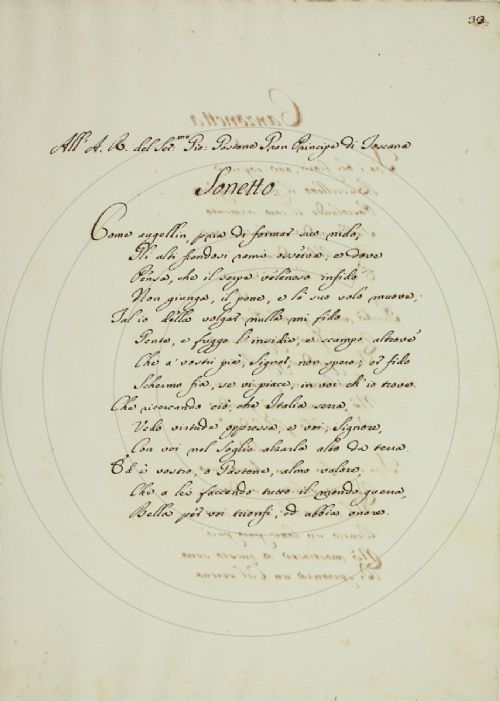 39.
All' A. R. del Ser.mo Gio: Gastone Gran Principe di Toscana
Sonetto
Come augellin, pria di formar suo nido,
Gli alti frondosi rami osserva, e dove
Pensa, che il serpe velenoso infido
Non giunga, il pone, e là suo volo muove;
Tal io della volgar nulla mi fido
Gente, e fuggo l'insidie, e scampo altrove
Che a' vostri piè, Signor, non spero; or fido
Schermo fia, se vi piace, in voi ch'io trove.
Che ricercando ciò, che Italia serra,
Vedo virtude oppressa, e voi, Signore,
Con voi nel Soglio alzarla alto da terra.
Ed è vostro, o Gastone, almo valore,
Che a lei faccendo tutto il mondo guerra,
Bella per voi trionfi, ed abbia onore.
Canzonetta